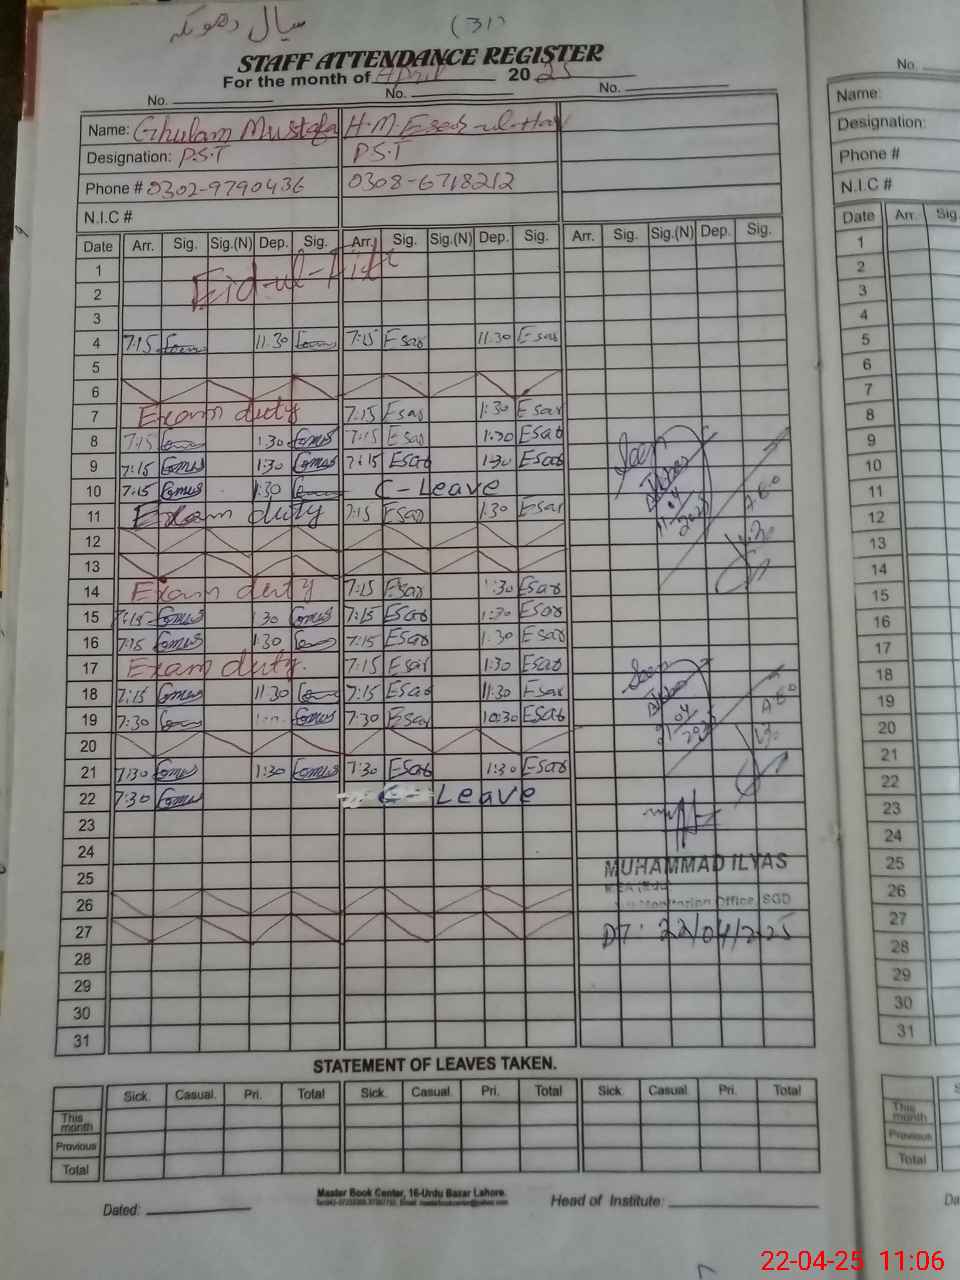 سیال دھوکہ
(31)
STAFF ATTENDANCE REGISTER
For the month of April 2025
No. No. No.
Name: Ghulam Mustafa H.M.Esar-ul-Haq
Designation: P.S.T P.S.T
Phone # 0302-9790436 0308-6718212
N.I.C #
Date Arr. Sig. Sig.(N) Dep. Sig. Arr. Sig. Sig.(N) Dep. Sig. Arr. Sig. Sig.(N) Dep. Sig.
1 Eid-ul-Fitr
2
3
4 7:15 11.30 7:15 Esar 11.30 Esar
5
6
7 Exam duty 7:15 Esar 1:30 Esar
8 7:15 1:30 7:15 Esar 1:30 Esar
9 7:15 1:30 7:15 Esar 1:30 Esar
10 7:15 1:30 C-Leave
11 Exam duty 7:15 Esar 1:30 Esar
12
13
14 Exam duty 7:15 Esar 1:30 Esar
15 7:15 1:30 7:15 Esar 1:30 Esar
16 7:15 1:30 7:15 Esar 1:30 Esar
17 Exam duty. 7:15 Esar 1:30 Esar
18 7:15 11:30 7:15 Esar 11:30 Esar
19 7:30 7:30 Esar 10:30 Esar
20
21 7:30 1:30 7:30 Esar 1:30 Esar
22 7:30 C-Leave
23
24
25
26
27
28
29
30
31
Seen
11/04/2025
AEO
Seen
21/04/2025
AEO
MUHAMMAD ILYAS
Monitoring Office, SGD
DT: 22/04/2025
STATEMENT OF LEAVES TAKEN.
Sick. Casual. Pri. Total Sick. Casual. Pri. Total Sick. Casual. Pri. Total
This month
Previous
Total
Master Book Center, 16-Urdu Bazar Lahore.
Dated: Head of Institute:
No.
Name:
Designation:
Phone #
N.I.C #
Date Arr. Sig.
1
2
3
4
5
6
7
8
9
10
11
12
13
14
15
16
17
18
19
20
21
22
23
24
25
26
27
28
29
30
31
This month
Previous
Total
22-04-25 11:06